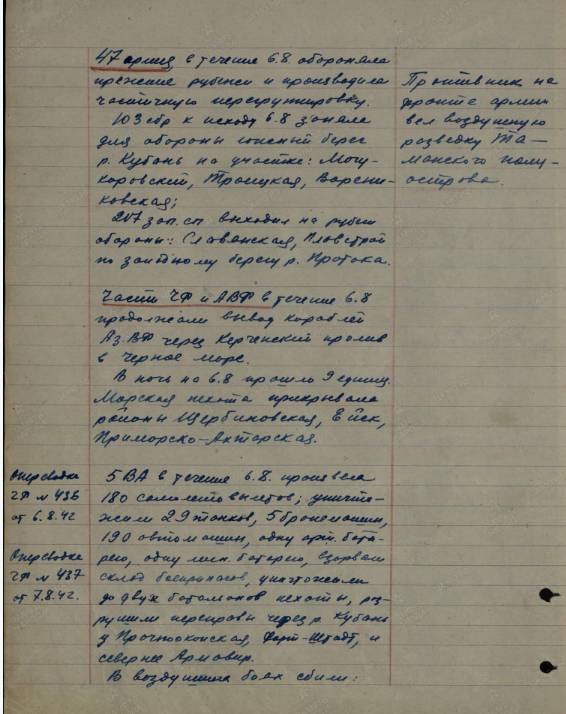 47 армия в течение 6.8 обороняла
прежние рубежи и производила
частичную перегруппировку.
103 сбр к исходу 6.8 заняла
для обороны южный берег
р. Кубань на участке:
Троицкая, Варени-
ковская;
207 зап. сп выходил на рубеж
обороны: Славянская,
по западному берегу р. Протока.
Противник на
фронте армии
вел воздушную
разведку Та-
манского полу-
острова.
Части ЧФ и АВФ в течение 6.8
продолжали вывод кораблей
Аз.ВФ через Керченский пролив
в Черное море.
В ночь на 6.8 прошло 9 единиц.
Морская пехота прикрывала
районы Щербиновская, Ейск,
Приморско-Ахтарская.
Оперсводка
ЧФ № 436
от 6.8.42
Оперсводка
ЧФ № 437
от 7.8.42.
5 ВА в течение 6.8. произвела
180 самолетовылетов; уничто-
жили 29 танков, 5 бронемашин,
190 автомашин, одну арт. бата-
рею, одну мин. батарею, взорвали
склад боеприпасов, уничтожили
до двух батальонов пехоты, раз-
рушили переправы через р. Кубань
у Прочноокопская, Форт-Штадт, и
севернее Армавир.
В воздушных боях сбили: